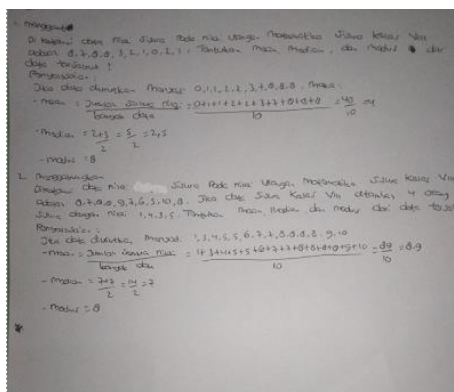 1. mengganti
Diketahui data nilai siswa Pada nilai ulangan Matematika siswa kelas VIII
adalah 8, 7, 8, 8, 3, 2, 1, 0, 2, 1. Tentukan mean, median, dan modus dari
data tersebut!
Penyelesaian:
Jika data diurutkan menjadi 0, 1, 1, 2, 2, 3, 7, 8, 8, 8. maka:
- mean = Jumlah semua nilai / banyak data = 0+1+1+2+2+3+7+8+8+8 / 10 = 40 / 10 = 4
- median = 2+3 / 2 = 5 / 2 = 2,5
- modus = 8
2. menggabungkan
Diketahui data nilai siswa Pada nilai ulangan Matematika siswa kelas VIII
adalah 8, 7, 8, 8, 9, 7, 6, 5, 10, 8. Jika data siswa kelas VIII ditambah 4 orang
siswa dengan nilai 1, 4, 3, 5. Tentukan mean, median, dan modus dari data
Penyelesaian:
Jika data diurutkan menjadi 1, 3, 4, 5, 5, 6, 7, 7, 8, 8, 8, 8, 9, 10
- mean = Jumlah semua nilai / banyak data = 1+3+4+5+5+6+7+7+8+8+8+8+9+10 / 10 = 89 / 10 = 8,9
- median = 7+7 / 2 = 14 / 2 = 7
- modus = 8